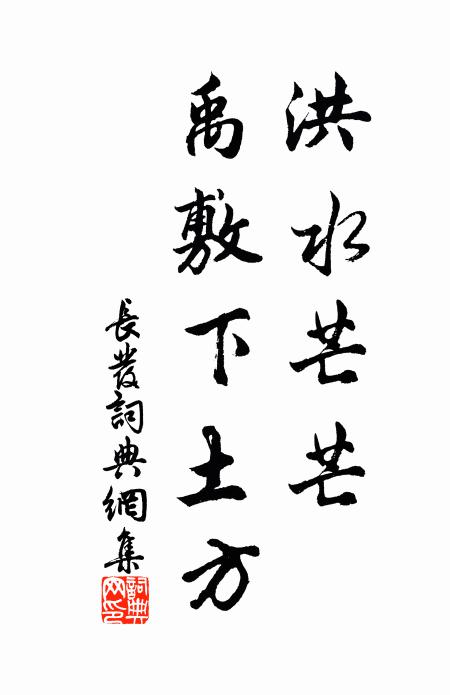 洪水芒芒
禹敷下土方
長發詞典網集
詞典网印